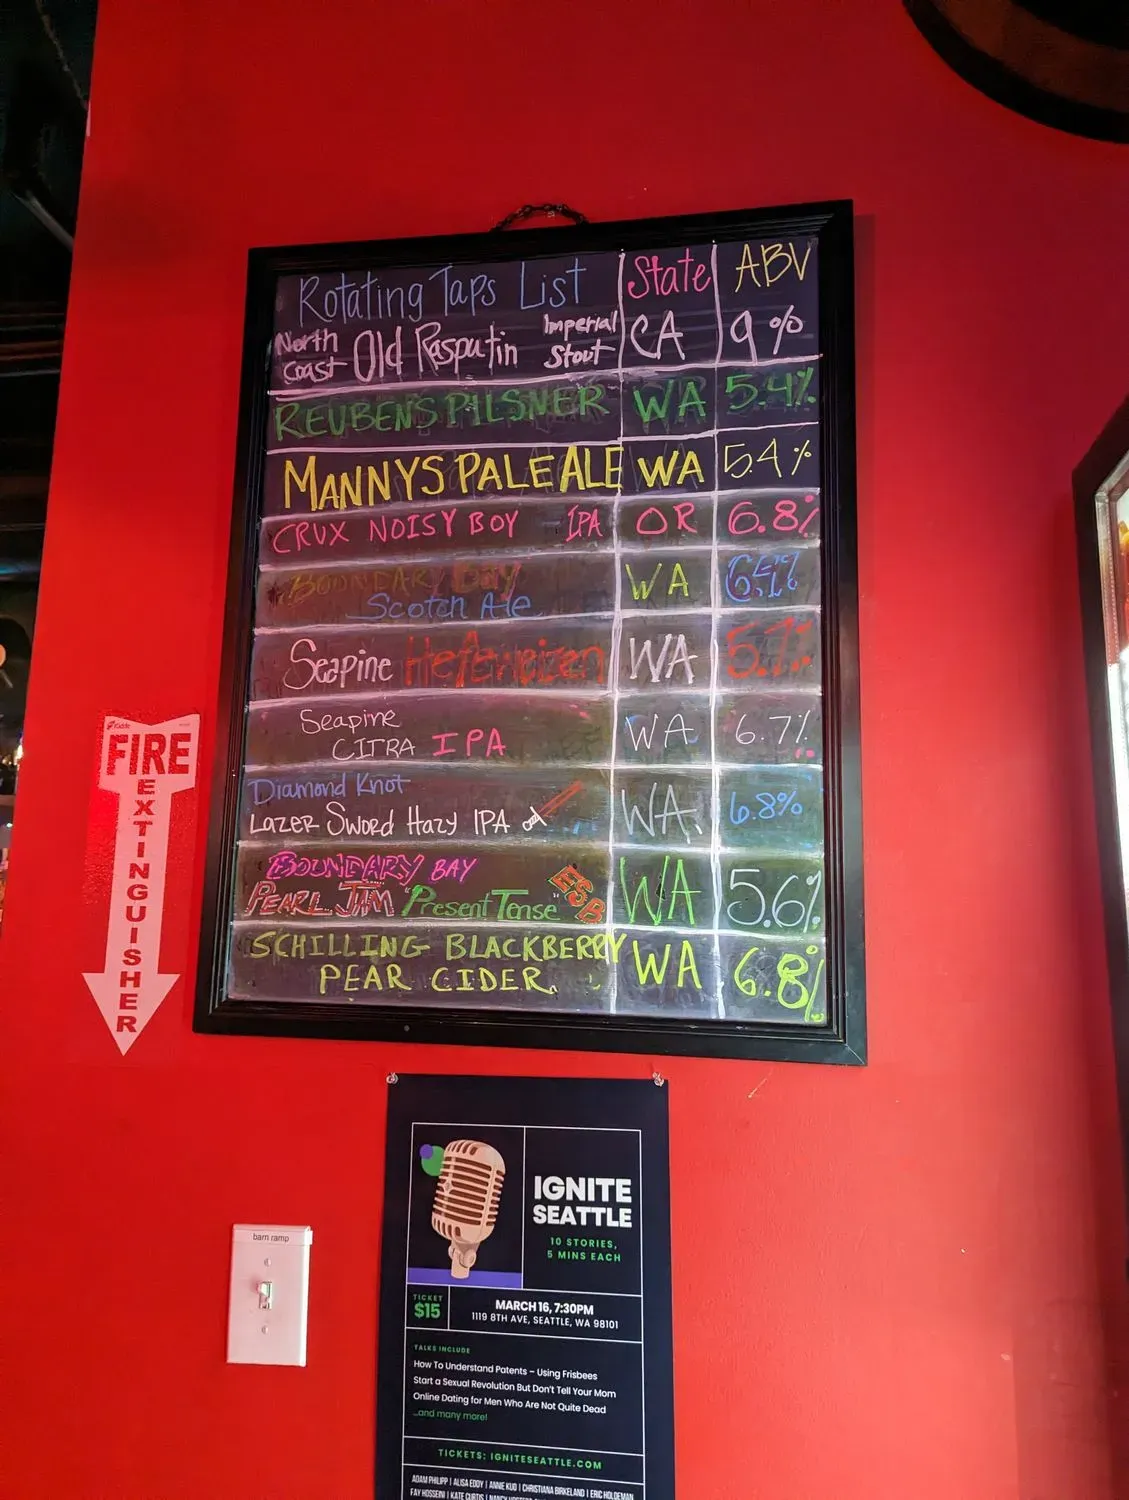 Rotating Taps List State ABV
North Coast Old Rasputin Imperial Stout CA 9%
REUBENS PILSNER WA 5.4%
MANNYS PALE ALE WA 5.4%
CRUX NOISY BOY IPA OR 6.8%
BOUNDARY BAY
Scotch Ale WA 6.4%
Seapine Hefeweizen WA 5.1%
Seapine
CITRA IPA WA 6.7%
Diamond Knot
LAZER SWORD HAZY IPA WA. 6.8%
BOUNDARY BAY
PEARL JAM "Present Tense" ESB WA 5.6%
SCHILLING BLACKBERRY
PEAR CIDER WA 6.8%
Kidde
FIRE
EXTINGUISHER
barn ramp
IGNITE
SEATTLE
10 STORIES,
5 MINS EACH
TICKET
$15
MARCH 16, 7:30PM
1119 8TH AVE, SEATTLE, WA 98101
TALKS INCLUDE
How To Understand Patents – Using Frisbees
Start a Sexual Revolution But Don't Tell Your Mom
Online Dating for Men Who Are Not Quite Dead
...and many more!
TICKETS: IGNITESEATTLE.COM
ADAM PHILIPP | ALISA EDDY | ANNIE KUO | CHRISTIANA BIRKELAND | ERIC HOLDEMAN
FAY HOSSEINI | KATE CURTIS |